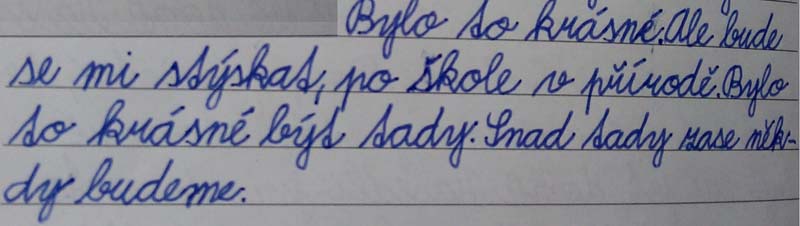 Bylo to krásné. Ale bude
se mi stýskat, po škole v přírodě. Bylo
to krásné být tady. Snad tady zase něk-
dy budeme.